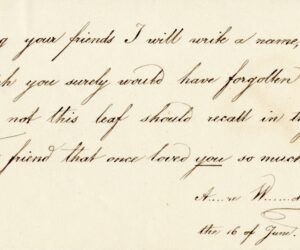 your friends I will write a name,
you surely would have forgotten
not this leaf should recall in
friend that once loved you so much
the 16 of June.